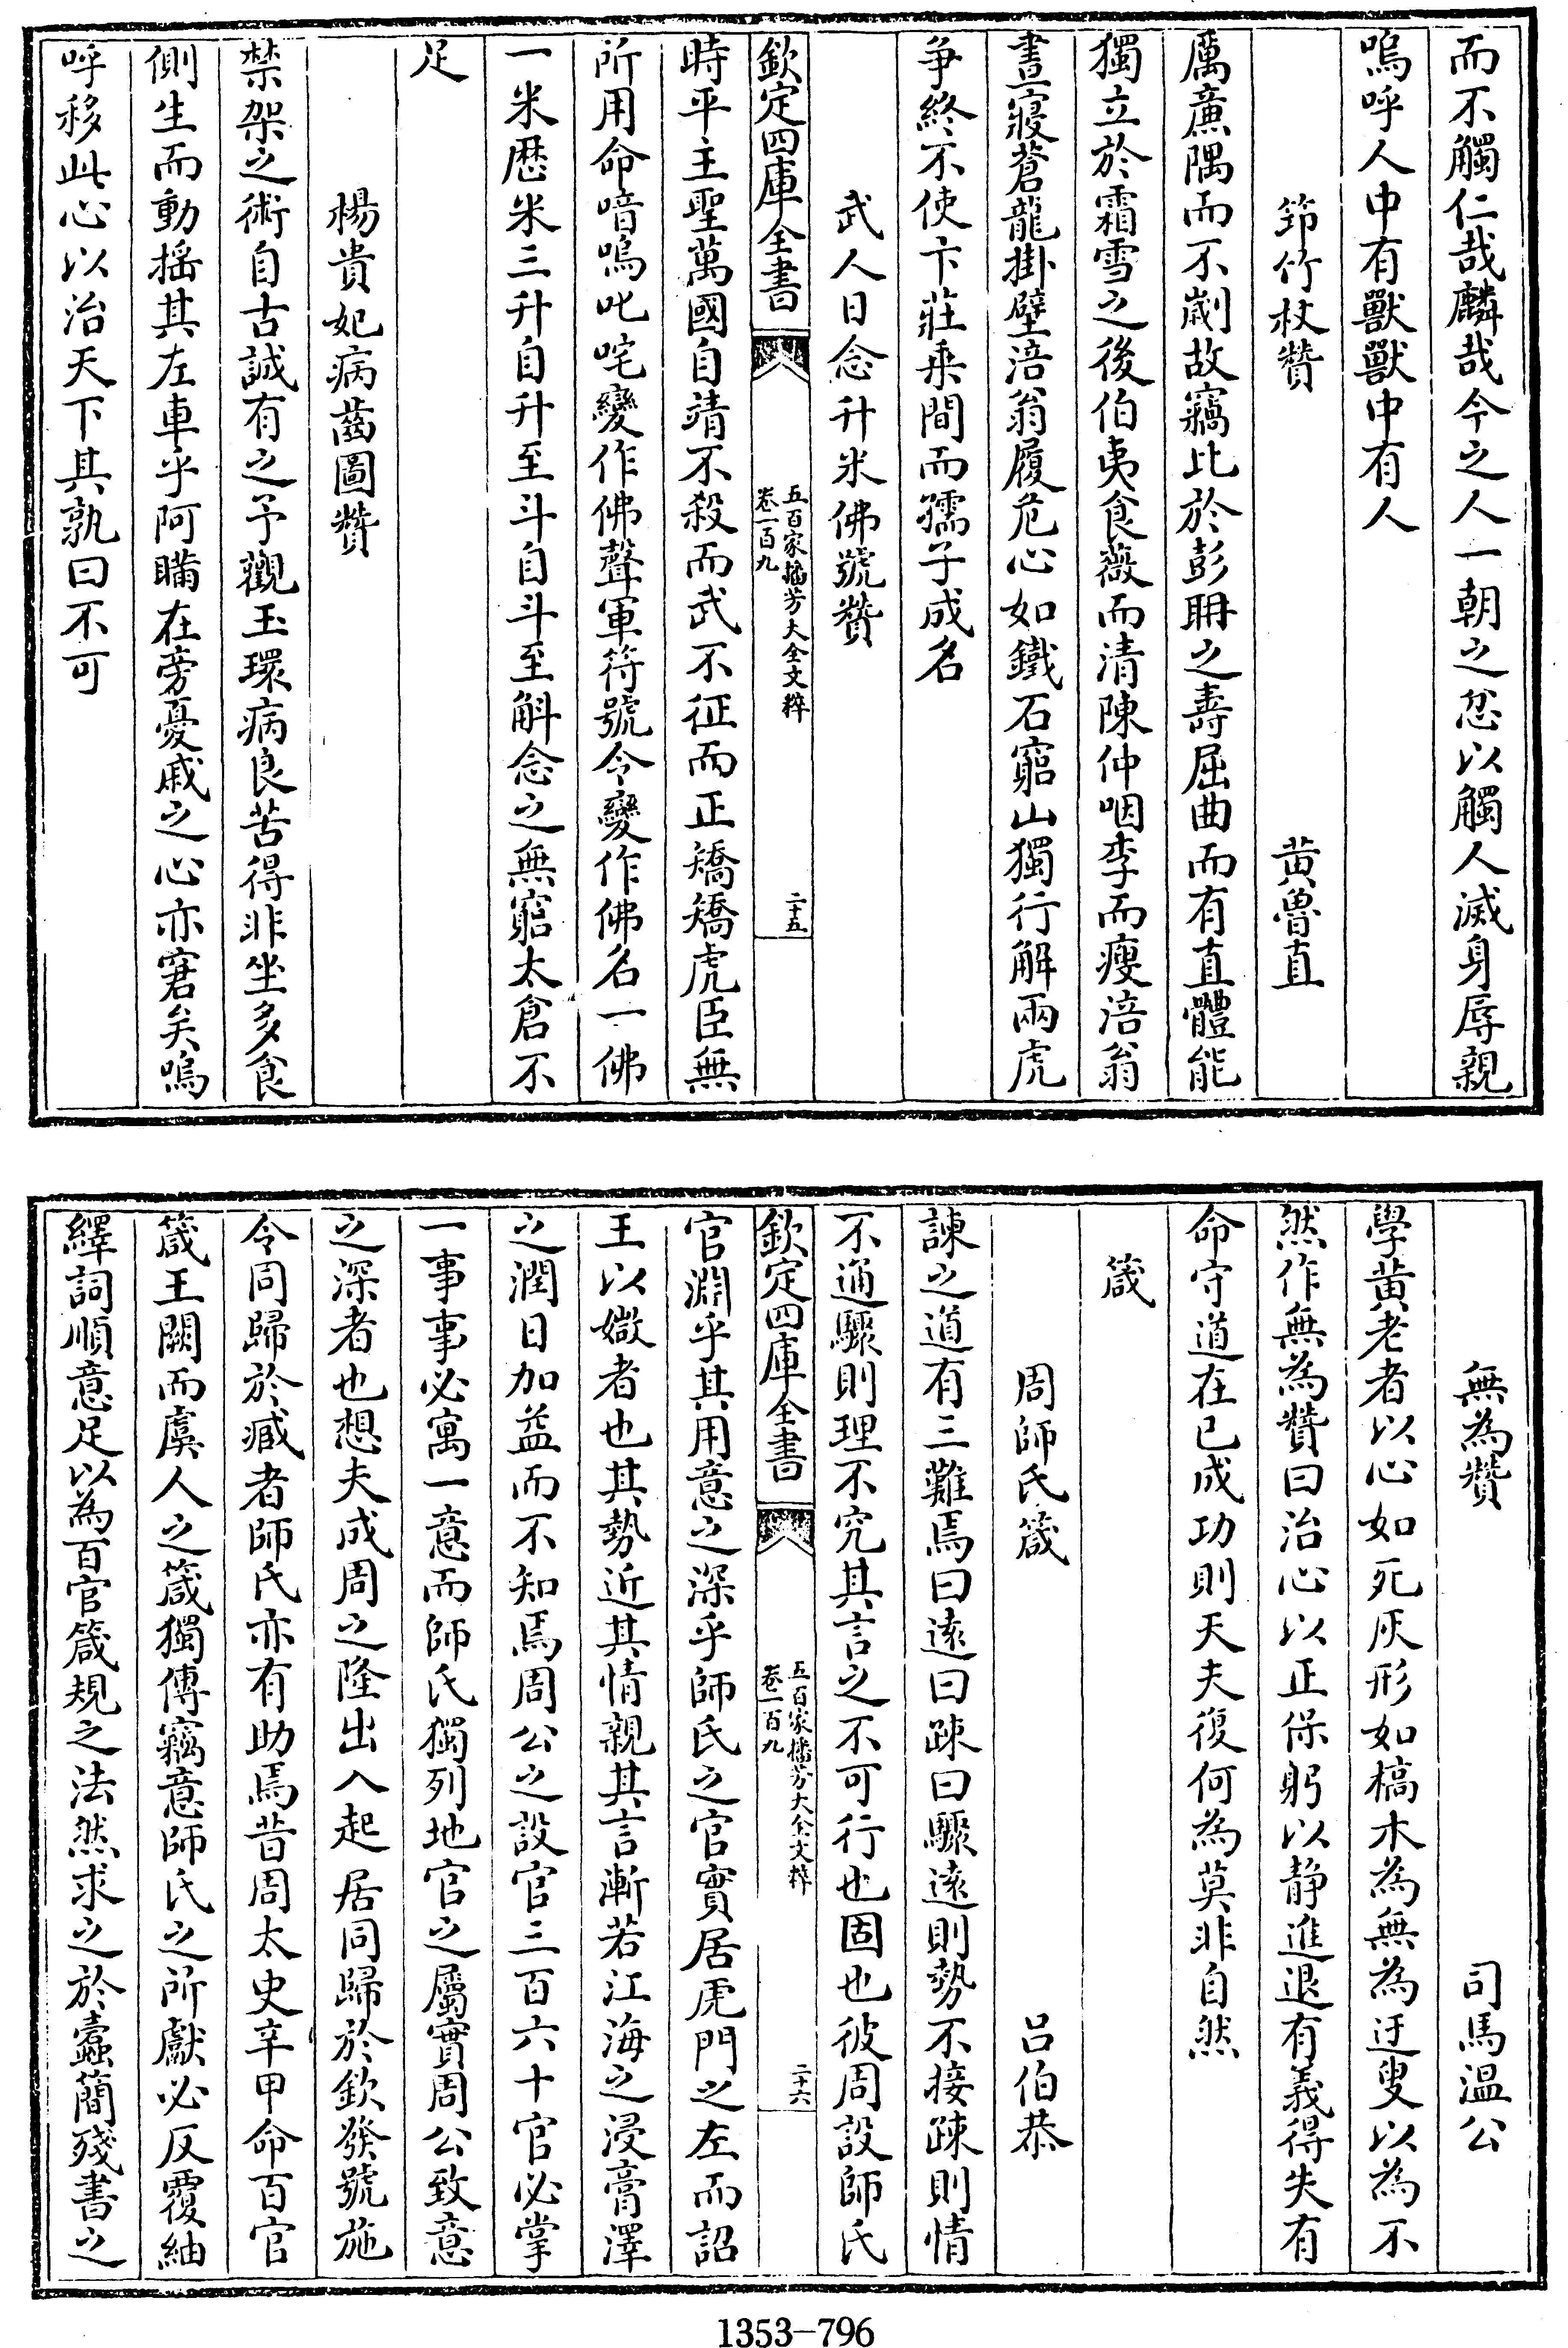 而不觸仁哉麟哉今之人一朝之忿以觸人滅身辱親
嗚呼人中有獸獸中有人
筇竹杖贊 黄魯直
厲㢘隅而不劌故竊比於彭耼之壽屈曲而有直體能
獨立於霜雪之後伯夷食薇而清陳仲咽李而瘦涪翁
晝寢蒼龍掛壁涪翁履危心如鐵石窮山獨行解兩虎
爭終不使卞莊乘間而孺子成名
武人日念升米佛號贊
欽定四庫全書
五百家播芳大全文粹
卷一百九
二十五
時平主聖萬國自靖不殺而武不征而正矯矯虎臣無
所用命喑嗚叱咤變作佛聲軍符號令變作佛名一佛
一米歴米三升自升至斗自斗至斛念之無窮太倉不
足
楊貴妃病齒圖贊
禁架之術自古誠有之予觀玉環病良苦得非坐多食
側生而動揺其左車乎阿瞞在旁憂戚之心亦窘矣嗚
呼移此心以治天下其孰曰不可
無為贊 司馬温公
學黄老者以心如死灰形如槁木為無為迂叟以為不
然作無為贊曰治心以正保躬以静進退有義得失有
命守道在已成功則天夫復何為莫非自然
箴
周師氏箴 吕伯恭
諫之道有三難焉曰遠曰疎曰驟遠則勢不接疎則情
不通驟則理不究其言之不可行也固也彼周設師氏
欽定四庫全書
五百家播芳大全文粹
卷一百九
二十六
官淵乎其用意之深乎師氏之官實居虎門之左而詔
王以媺者也其勢近其情親其言漸若江海之浸膏澤
之潤日加益而不知焉周公之設官三百六十官必掌
一事事必寓一意而師氏獨列地官之屬實周公致意
之深者也想夫成周之隆出入起居同歸於欽發號施
令同歸於臧者師氏亦有助焉昔周太史辛甲命百官
箴王闕而虞人之箴獨傳竊意師氏之所獻必反覆紬
繹詞順意足以為百官箴規之法然求之於蠹簡殘書之
1353-796